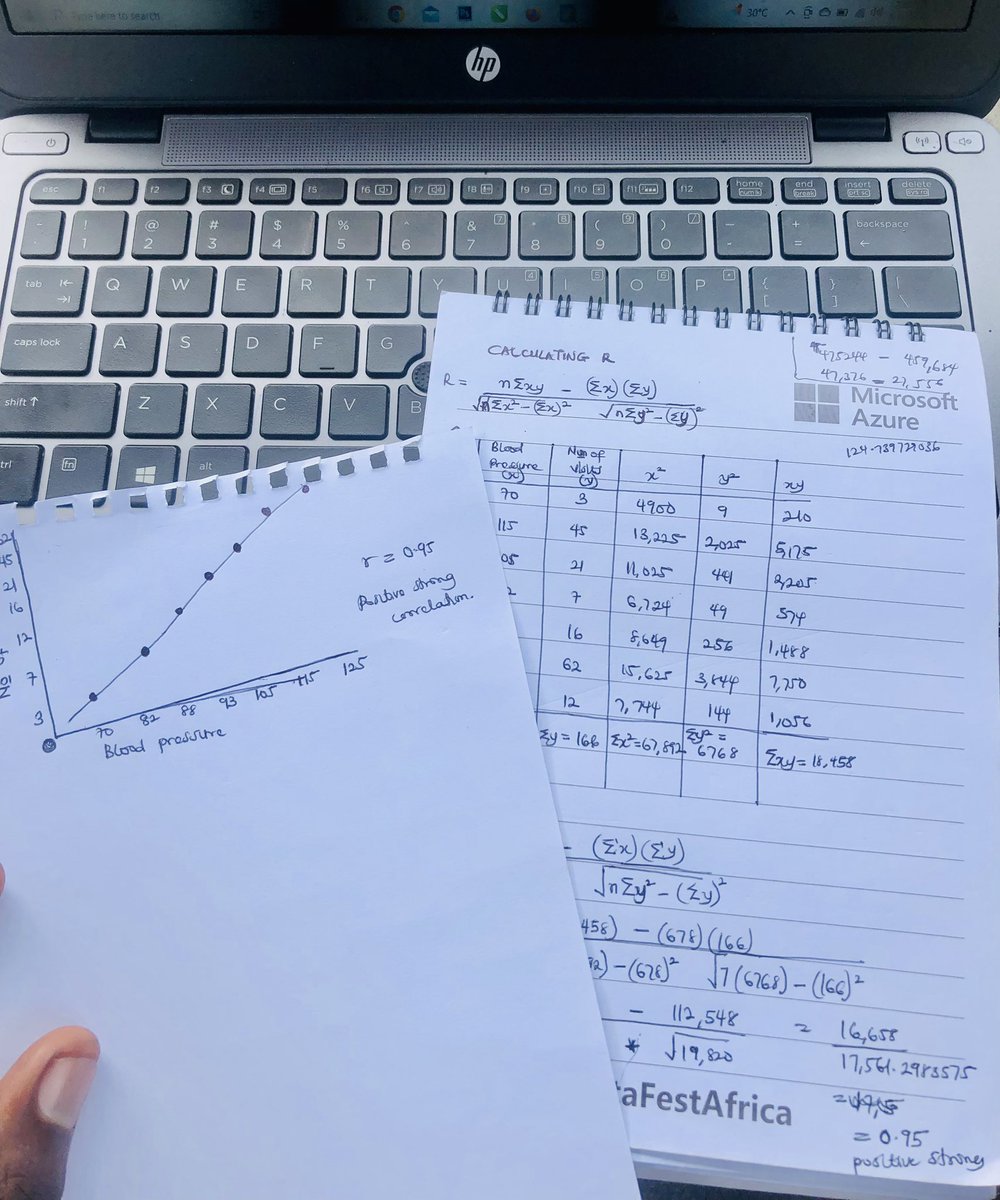 Type here to search
30°C
hp
esc f1 f2 f3 f4 f5 f6 f7 f8 f9 f10 f11 f12 home end insert delete
! 1 @ 2 # 3 $ 4 % 5 ^ 6 & 7 * 8 ( 9 ) 0 - + = backspace
tab Q W E R T Y U I O P { [ } ] | \
caps lock A S D F G
shift Z X C V B
fn alt
CALCULATING R
R = nΣxy - (Σx)(Σy)
√nΣx² - (Σx)² √nΣy² - (Σy)²
475244 - 459,684
47,376 - 27,556
Microsoft
Azure
124.739729036
Blood Pressure (x) Num of visits (y) x² y² xy
70 3 4900 9 210
115 45 13,225 2,025 5,175
05 21 11,025 441 2,205
2 7 6,724 49 574
16 8,649 256 1,488
62 15,625 3,844 7,750
12 7,744 144 1,056
Σy = 166 Σx² = 67,892 Σy² = 6768 Σxy = 18,458
- (Σx)(Σy)
√nΣy² - (Σy)²
458) - (678)(166)
92) - (678)² √7(6768) - (166)²
- 112,548 = 16,658
* √19,820 17,561.2983575
= 0.95
positive strong
taFestAfrica
r = 0.95
Positive strong
correlation.
45
21
16
12
7
3
70 82 88 93 105 115 125
Blood pressure